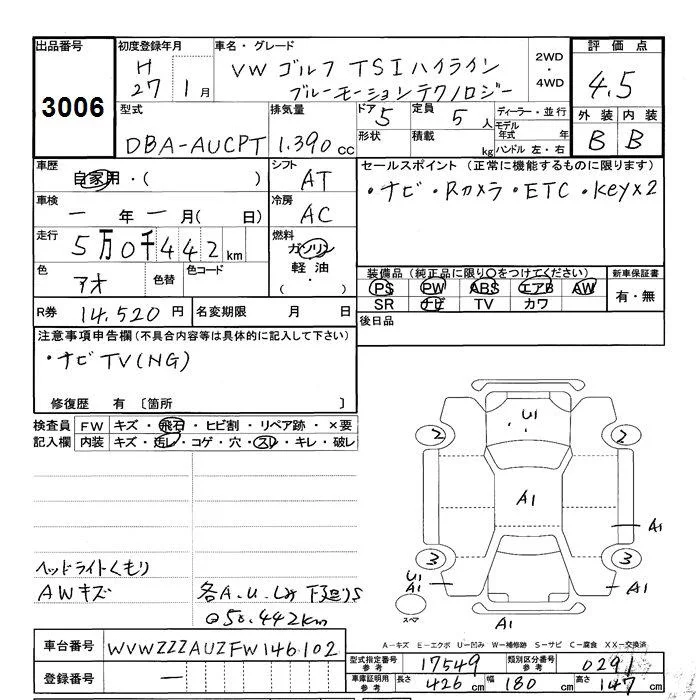 出品番号 初度登録年月 車名・グレード 評価点
3006 H 27年 1月 VW ゴルフ TSIハイライン 2WD・4WD 4.5
ブルーモーションテクノロジー
型式 排気量 ドア 5 定員 5人 ディーラー・並行 外装 内装
DBA-AUCPT 1.390cc 形状 積載 kg モデル年式 年 ハンドル 左・右 B B
車歴 自家用・( ) シフト AT セールスポイント (正常に機能するものに限ります)
車検 一年一月( 日) 冷房 AC ・ナビ・Rカメラ・ETC・Key×2
走行 5万0千442km 燃料 ガソリン・軽油・( )
色 アオ 色替 色コード
装備品 (純正品に限り○をつけてください) 新車保証書
PS PW ABS エアB AW 有・無
SR ナビ TV カワ
R券 14,520円 名変期限 月 日 後日品
注意事項申告欄(不具合内容等は具体的に記入して下さい)
・ナビTV(NG)
修復歴 有 〔箇所 〕
検査員記入欄 FW キズ・飛石・ヒビ割・リペア跡・×要
内装 キズ・汚レ・コゲ・穴・スレ・キレ・破レ
U1
2 2
A1
A1
3 3
U1
A1 A1
スペア A1
ヘッドライトくもり
AWキズ 各A.U.
@50.442km
A-キズ E-エクボ U-凹み W-補修跡 S-サビ C-腐食 XX-交換済
車台番号 WVWZZZAUZFW146102
型式指定番号 参考 17549 類別区分番号 参考 0291
登録番号 一 車庫証明用 参考 長さ 426cm 幅 180cm 高さ 147cm